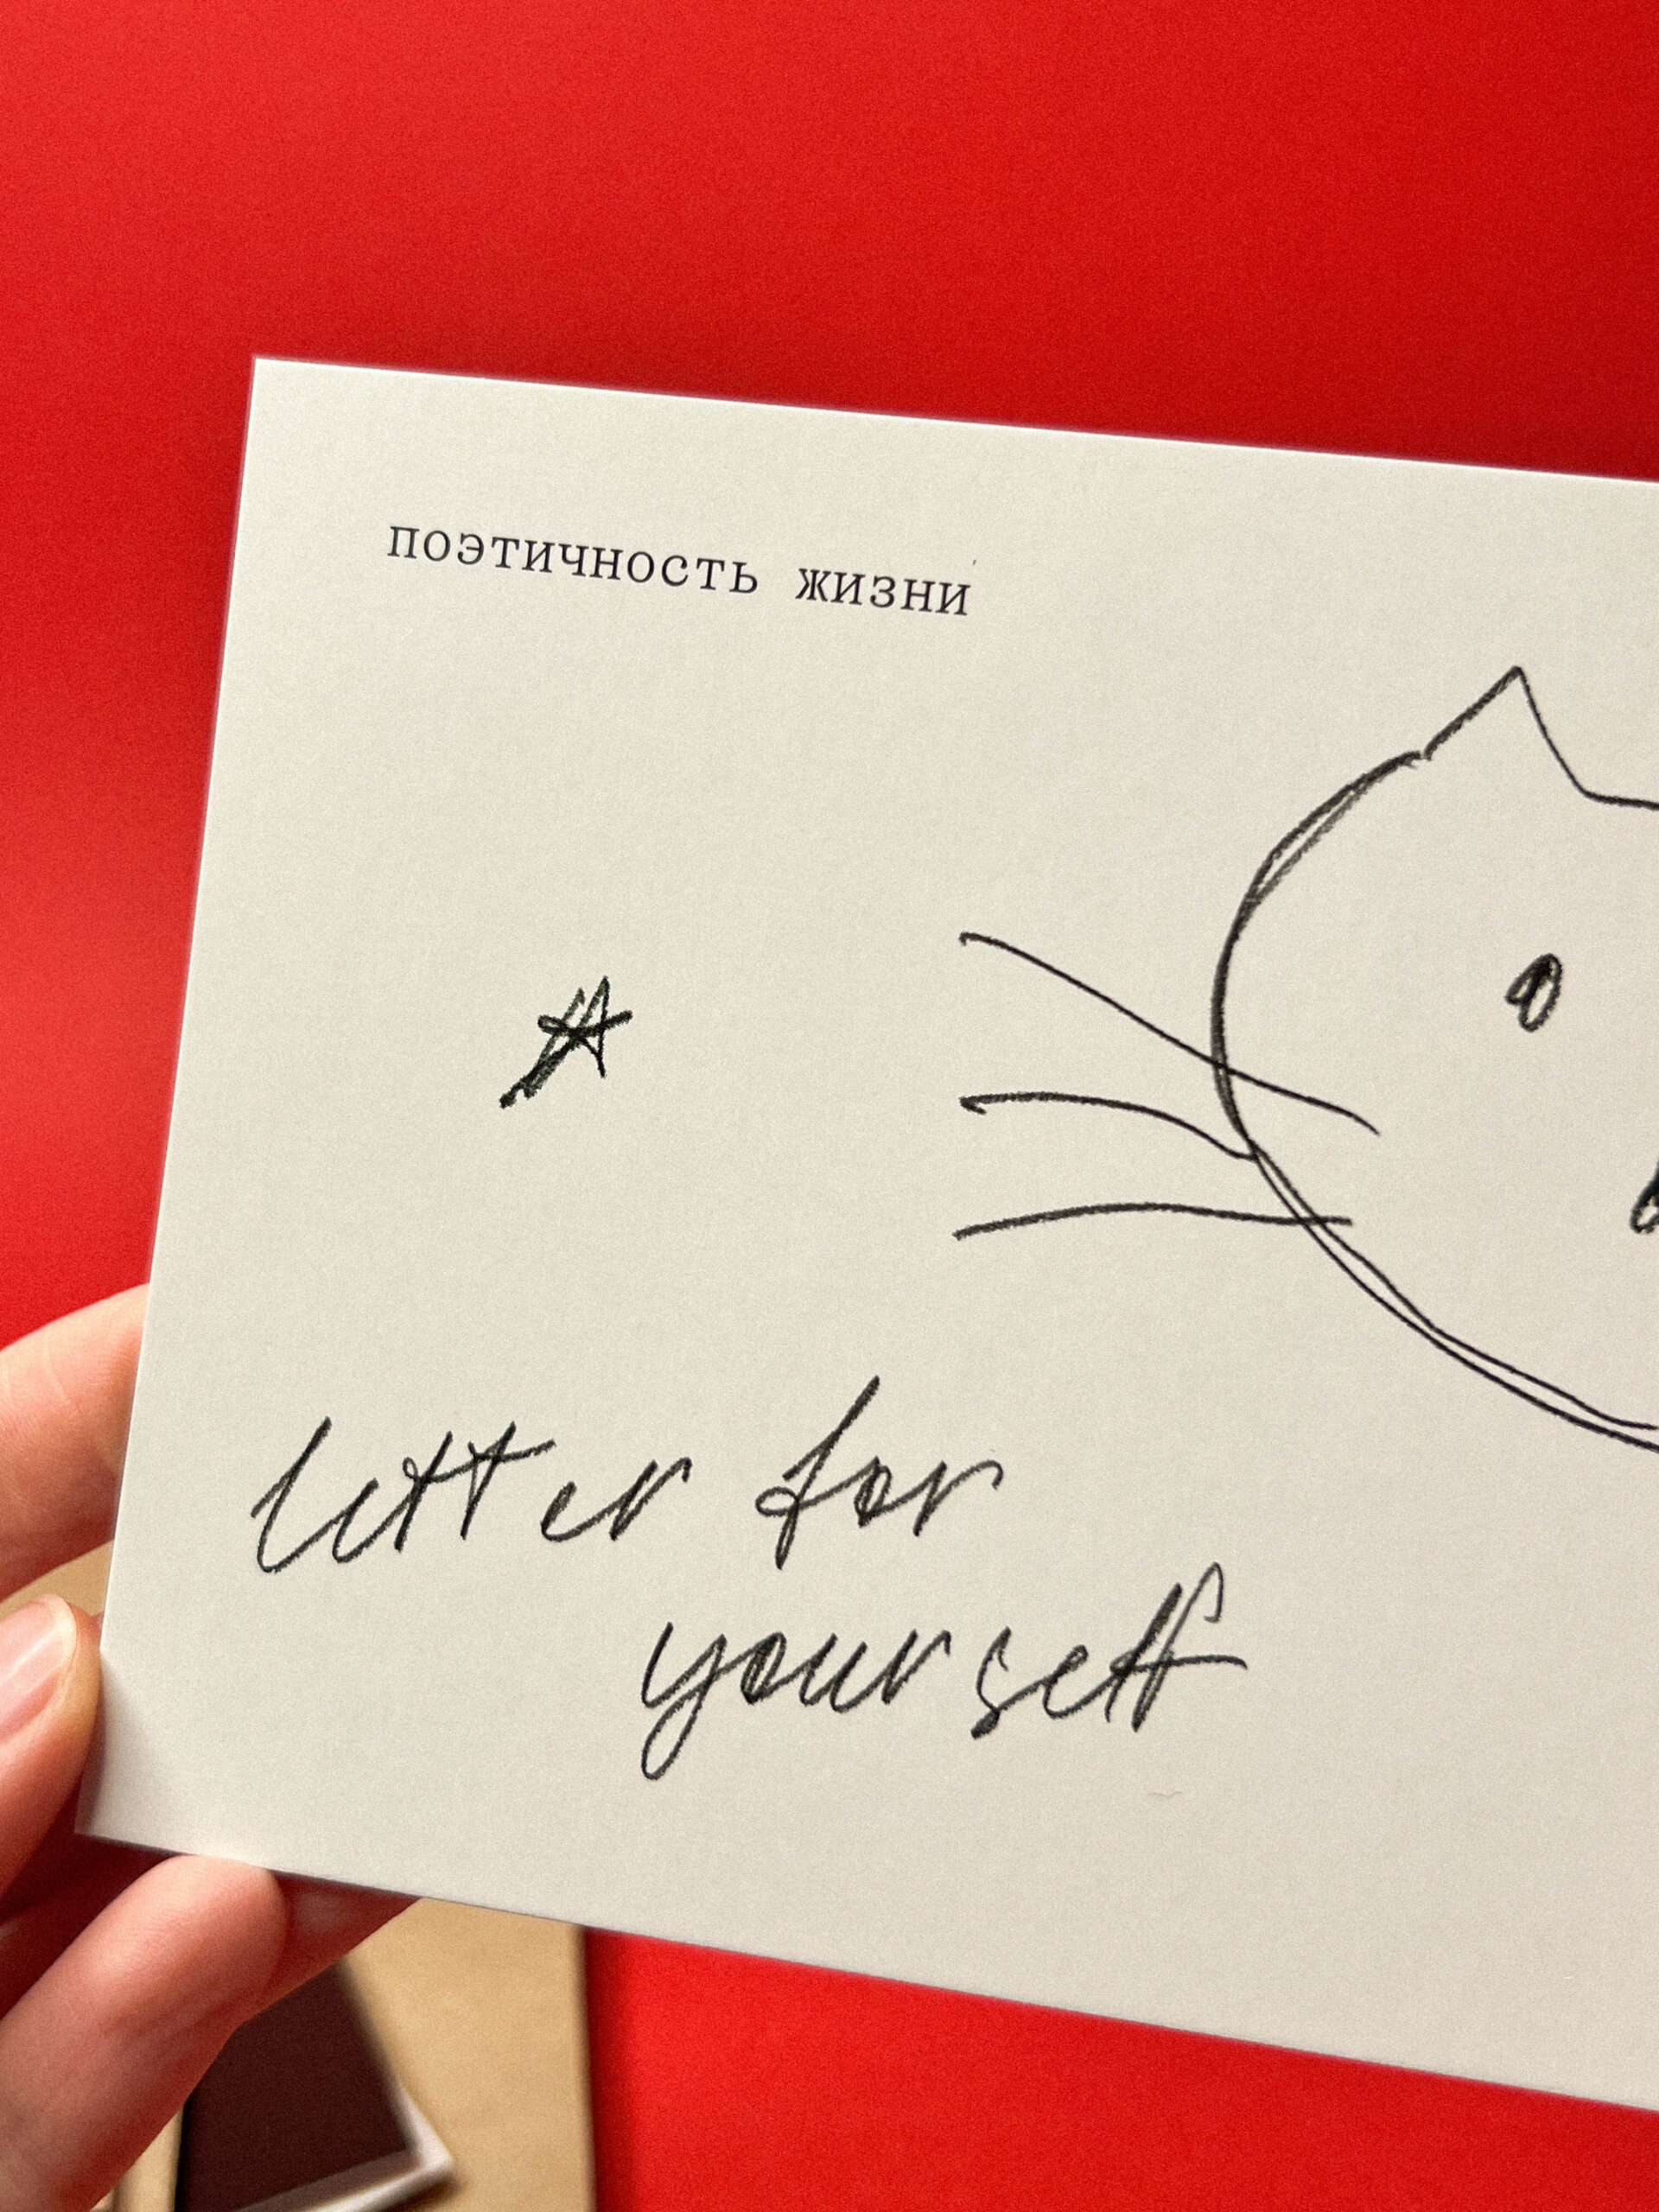 поэтичность жизни
letter for
yourself